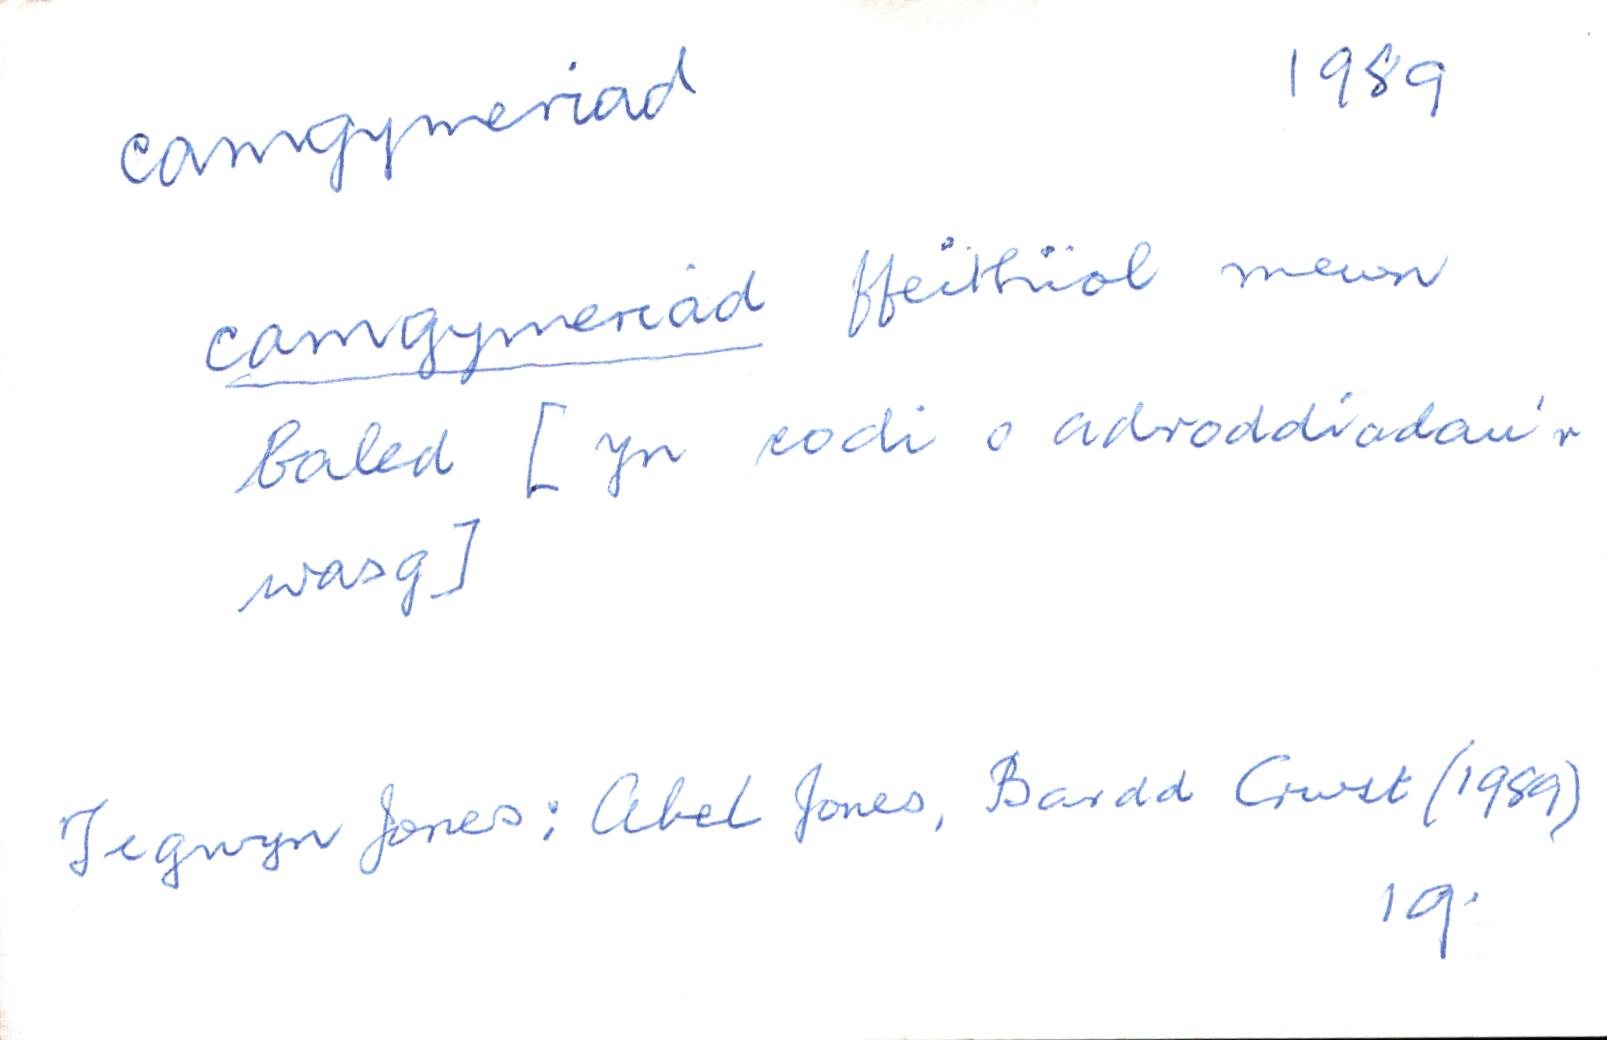 camgymeriad 1989
camgymeriad ffeithiol mewn
baled [yn codi o adroddiadau'r
wasg]
Tegwyn Jones: Abel Jones, Bardd Crwst (1989)
19.